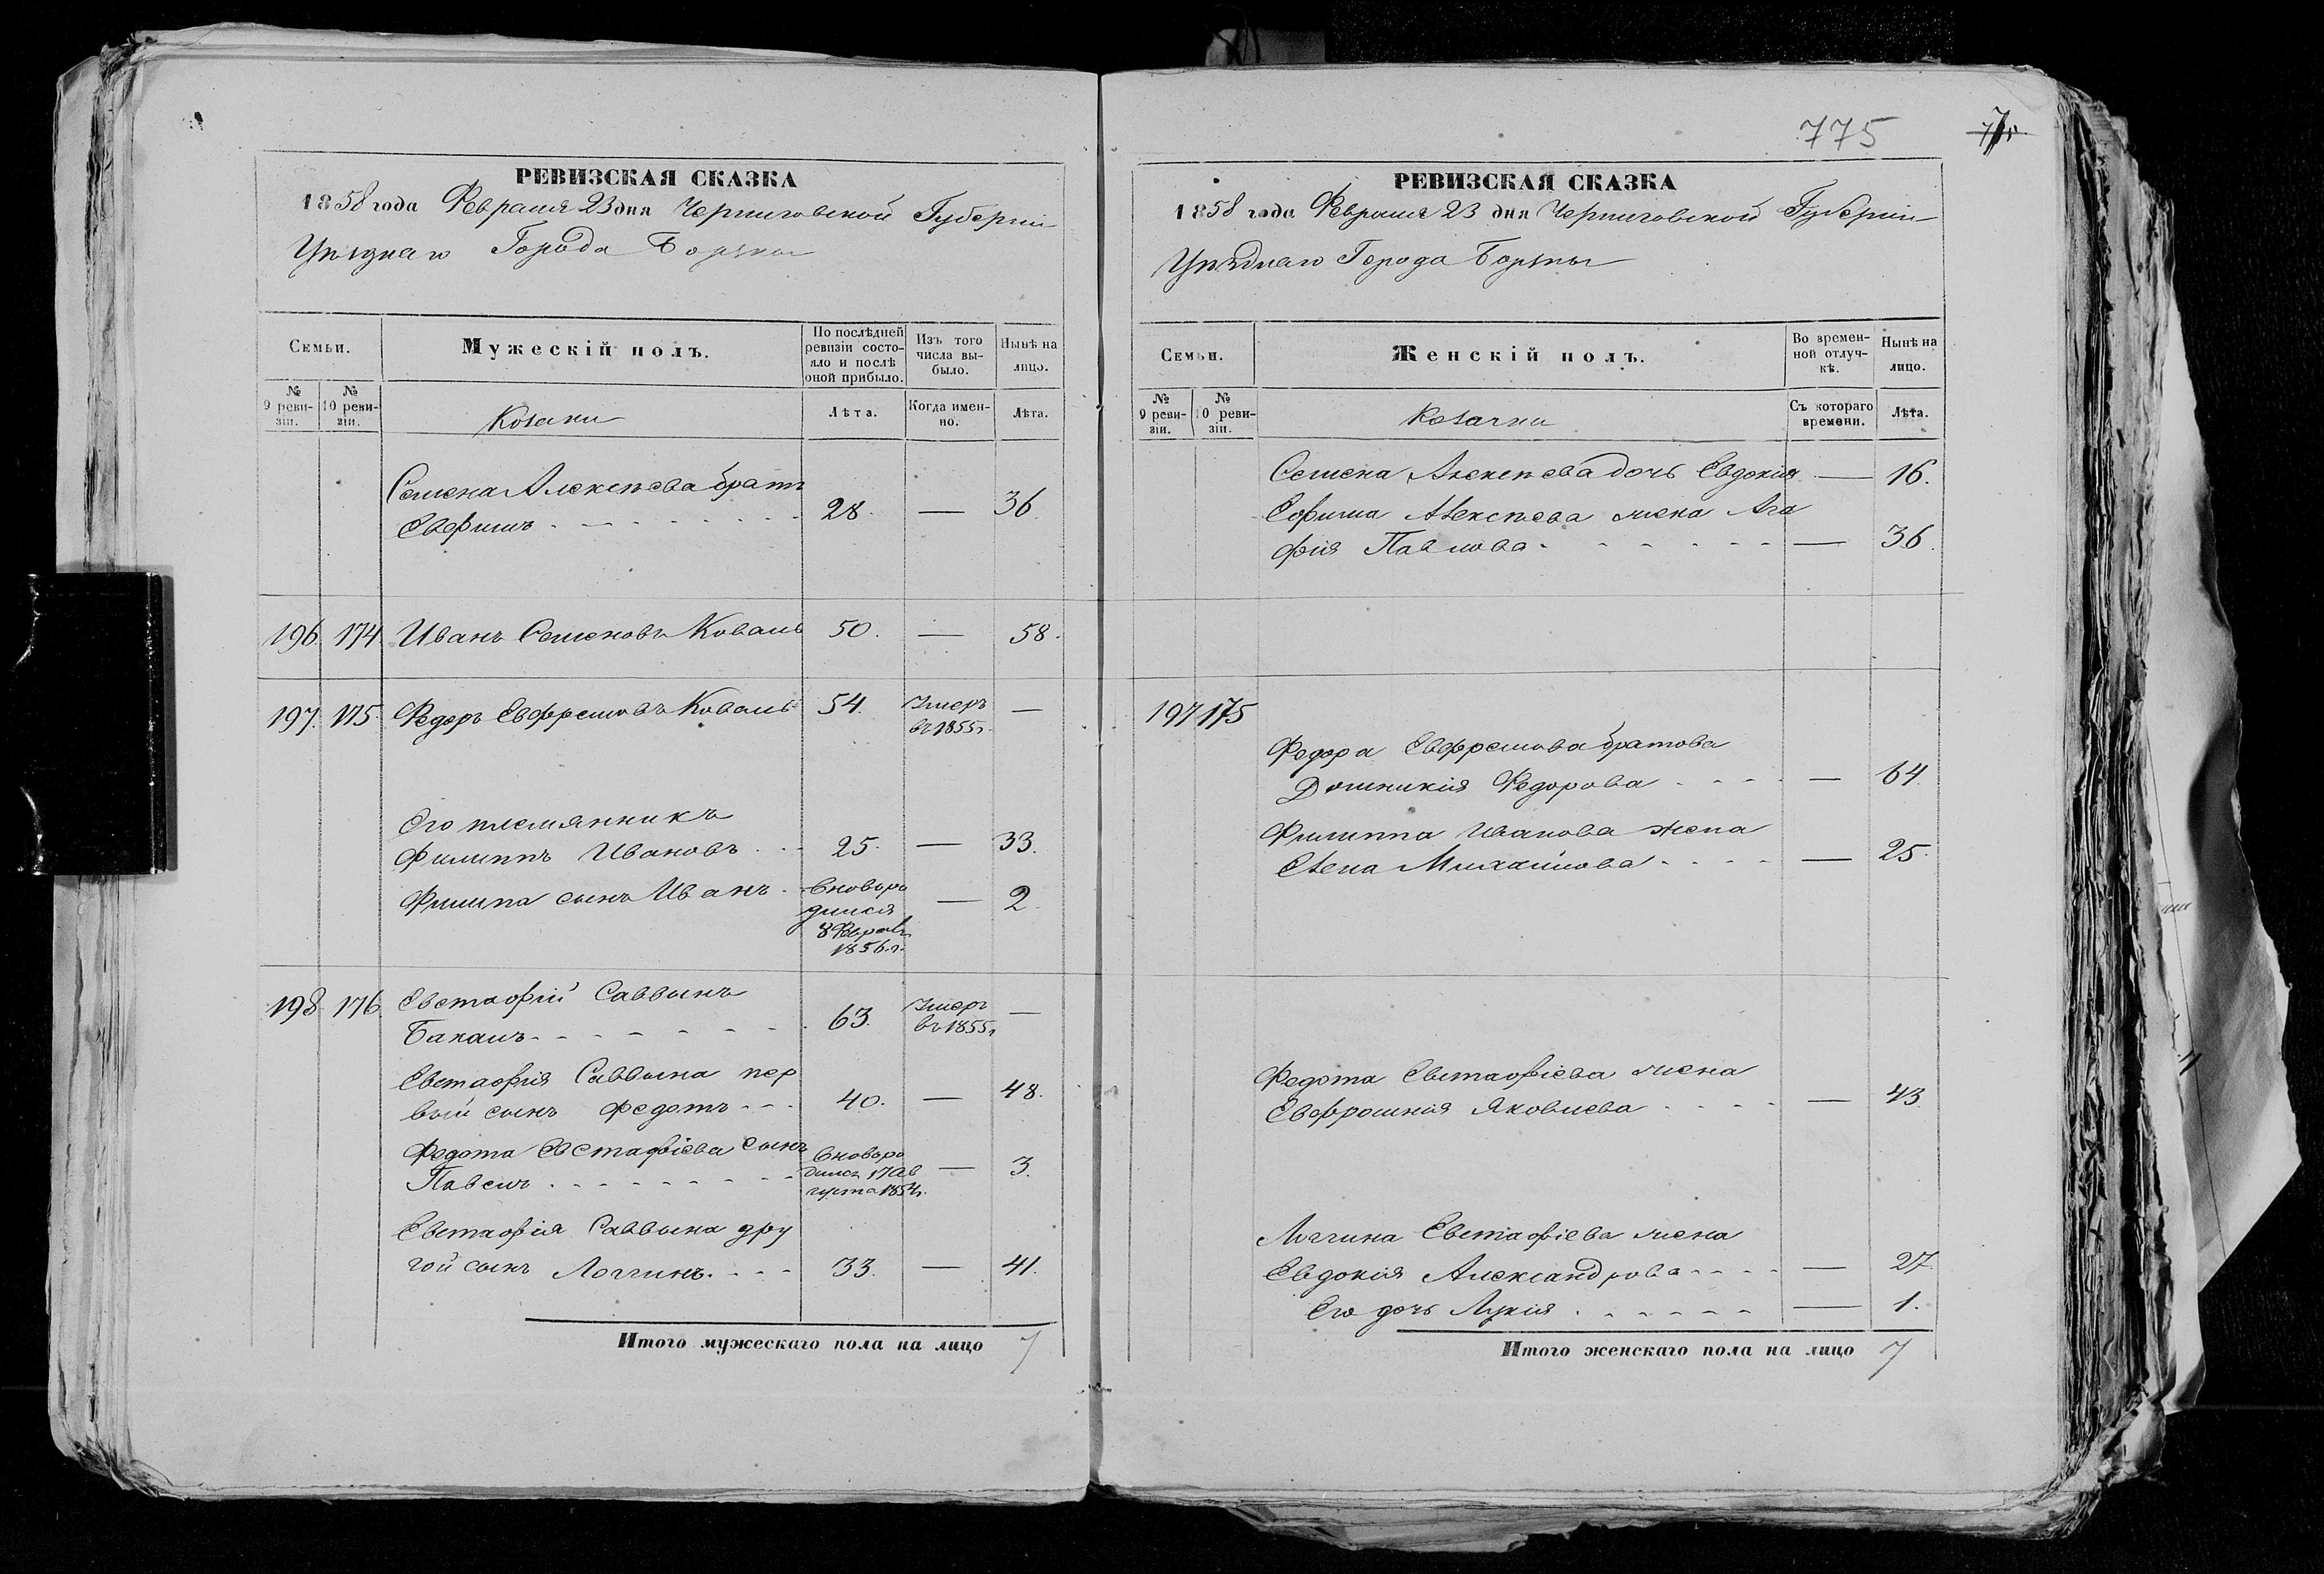 РЕВИЗСКАЯ СКАЗКА
1858 года Февраля 23 дня Черниговской Губерніи
Уѣзднаго Города Борзны
Семьи.
Мужескій полъ.
По послѣдней ревизіи состояло и послѣ оной прибыло.
Изъ того числа выбыло.
Нынѣ на лицо.
№ 9 ревизіи.
№ 10 ревизіи.
Козаки
Лѣта.
Когда именно.
Лѣта.
Семена Алексѣева братъ
Евфимъ 28. — 36
196. 174. Иванъ Семеновъ Коваль 50. — 58.
197. 175. Федоръ Евфремовъ Коваль 54. Умеръ —
въ 1855 г.
Его племянникъ
Филиппъ Ивановъ 25. — 33.
Филипа сынъ Иванъ Вновьро — 2.
дился
8 Февраля
1856 г.
198. 176. Евстафій Саввинъ Умеръ
Бакаль 63. въ 1855 г —
Евстафія Саввына пер
вый сынъ Федотъ 40. — 48.
Федота Евстафіева сынъ Вновьро
Павелъ дилсъ 17 Ав — 3.
густа 1854 г.
Евстафія Саввына дру
гой сынъ Логгинъ 33. — 41.
Итого мужескаго пола на лицо 7
775
РЕВИЗСКАЯ СКАЗКА
1858 года Февраля 23 дня Черниговской Губерніи
Уѣзднаго Города Борзны
Семьи.
Женскій полъ.
Во временной отлучкѣ.
Нынѣ на лицо.
№ 9 ревизіи.
№ 10 ревизіи.
Козачки
Съ котораго времени.
Лѣта.
Семена Алексѣева дочь Евдокия — 16.
Евфима Алексѣева жена Ага
фія Павлова — 36.
197 175
Федора Евфремова братова
Домникія Федорова — 64.
Филиппа Иванова жена
Елена Михайлова — 25.
Федота Евстафіева жена
Евфросинія Яковлева — 43
Логгина Евстафіева жена
Евдокія Александрова — 27.
Его дочь Лукія — 1.
Итого женскаго пола на лицо 7